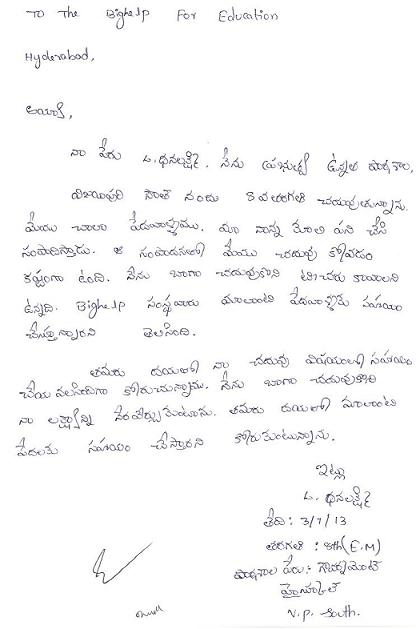 To The Bighelp For Education
Hyderabad,
అయ్యా,
నా పేరు L. ధనలక్ష్మి. నేను ప్రభుత్వ ఉన్నత పాఠశాల,
విజయపురి సౌత్ నందు 8 వ తరగతి చదువుతున్నాను.
మేము చాలా పేదవాళ్ళము. మా నాన్న కూలి పని చేసి
సంపాదిస్తాడు. ఆ సంపాదనతో మేము చదువు కోవడం
కష్టంగా ఉంది. నేను బాగా చదువుకొని టీచరు కావాలని
ఉన్నది. Bighelp సంస్థవారు మాలాంటి పేదవాళ్ళకు సహాయం
చేస్తున్నారని తెలిసింది.
తమరు దయతో నా చదువు విషయంలో సహాయం
చేయ వలసినదిగా కోరుచున్నాను. నేను బాగా చదువుకొని
నా లక్ష్యాన్ని నెరవేర్చుకుంటాను. తమరు దయతో మాలాంటి
పేదలకు సహాయం చేస్తారని కోరుకుంటున్నాను.
ఇట్లు
L. ధనలక్ష్మి
తేది : 3/7/13
తరగతి : 8th (E.M)
పాఠశాల పేరు : గవర్నమెంట్
హైస్కూల్
V.P. South.